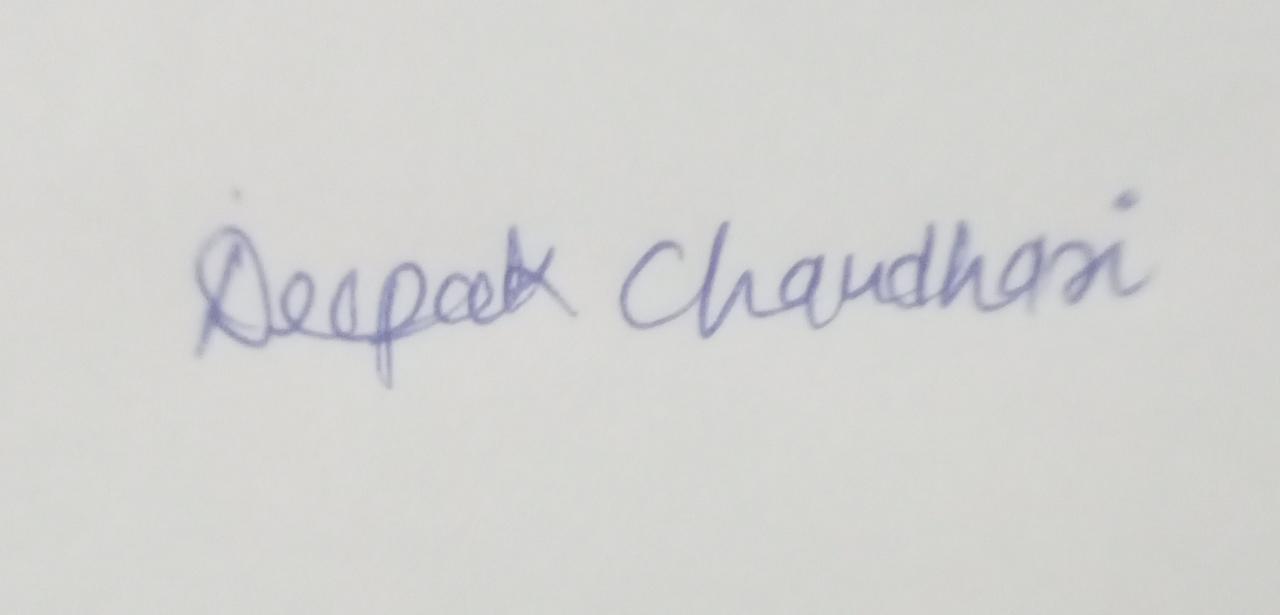 Deepak Chaudhari